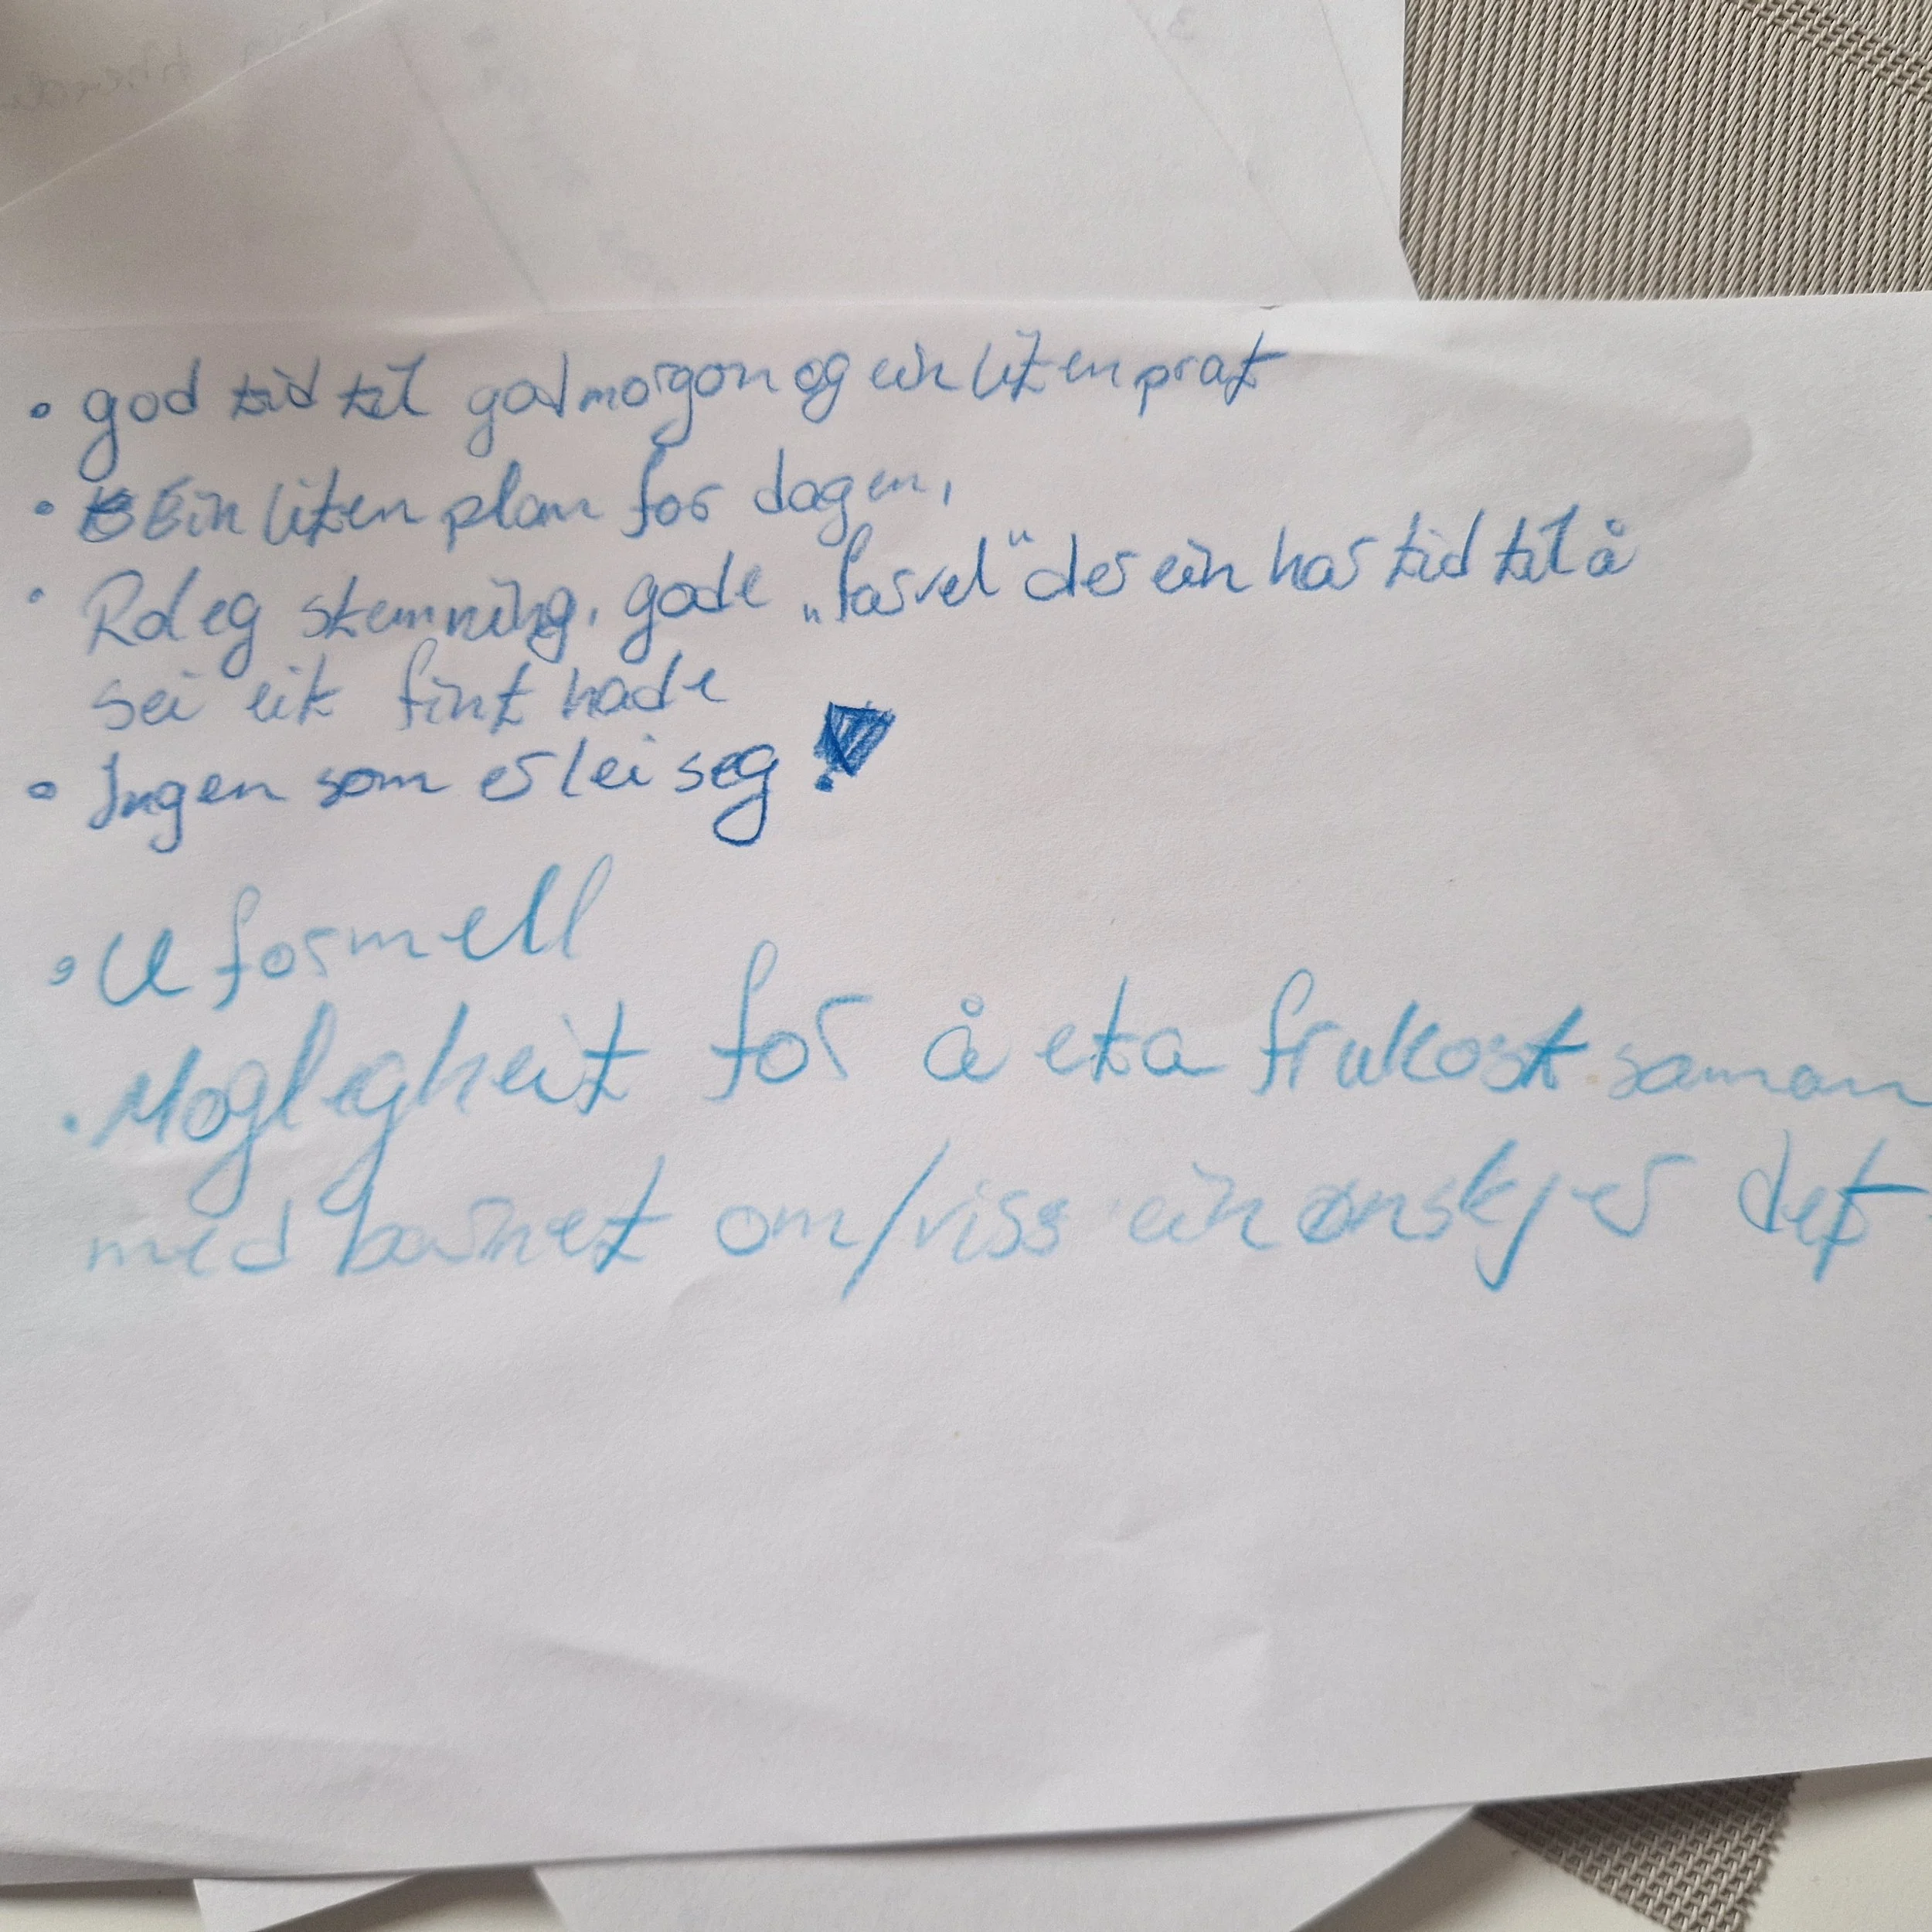 • god tid til godmorgon og ein liten prat
• Ein liten plan for dagen,
• Roleg stemning, gode „farvel" der ein har tid til å
sei eit fint hade
• Ingen som er lei seg!
• Uformell
• Moglegheit for å eta frukost saman
med barnet om/viss ein ønskjer det.